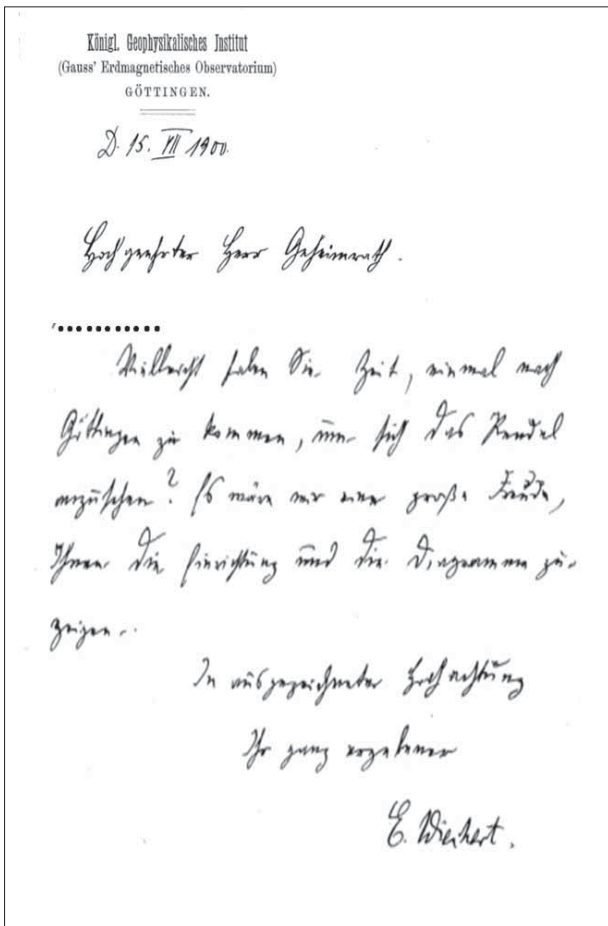 Königl. Geophysikalisches Institut
(Gauss' Erdmagnetisches Observatorium)
GÖTTINGEN.
D. 15. VII 1900.
Hochgeehrter Herr Geheimrath.
Vielleicht haben Sie Zeit, einmal nach
Göttingen zu kommen, um sich das Pendel
anzusehen? Es wäre mir eine große Freude,
Ihnen die Einrichtung und die Diagramme zu
zeigen.
In ausgezeichneter Hochachtung
Ihr ganz ergebener
E. Wiechert.